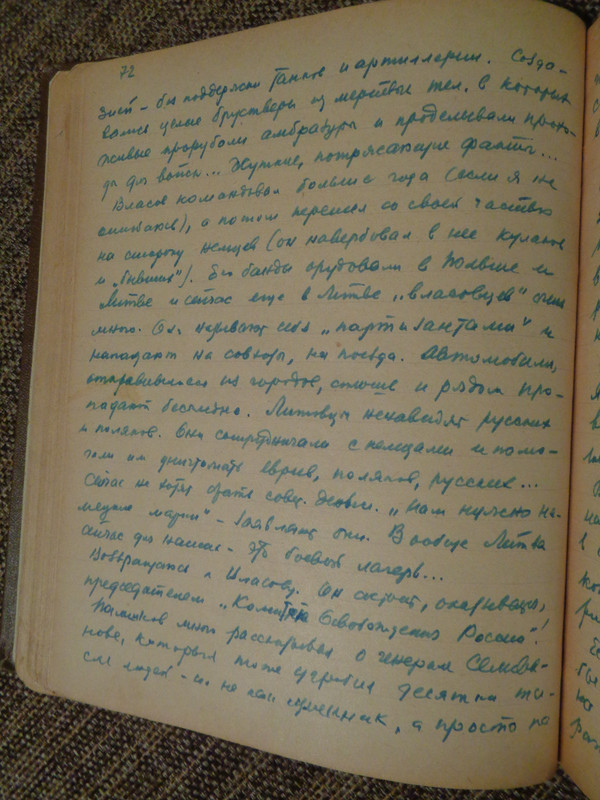 72
зист - без поддержки танков и артиллерии. Созда-
вались целые брустверы из мертвых тел, в которых
живые прорубали амбразуры и проделывали прохо-
ды для воды... Жуткие, потрясающие факты...
Власов командовал больше года (если я не
ошибаюсь), а потом перешел со своей частью
на сторону немцев (он навербовал в нее кулаков
и „бывших"). Его банды орудовали в Польше и
Литве и сейчас еще в Литве „власовцев" очень
много. Они называют себя „партизантами" и
нападают на совхозы, на поезда. Автомобили,
отправившиеся из городов, сплошь и рядом про-
падают бесследно. Литовцы ненавидят русских
и поляков. Они сотрудничали с немцами и помо-
гали им уничтожать евреев, поляков, русских...
Сейчас не хотят брать совет. деньги. „Нам нужно не-
мецкие марки" - заявляют они. Вообще Литва
сейчас для наших - это боевой лагерь...
Возвращаясь к Власову. Он состоит, оказывается,
председателем „Комитета Освобождения России"!
много рассказывал о генерале Семе-
нове, который тоже угробил десятки ты-
сяч людей - но не как изменник, а просто по